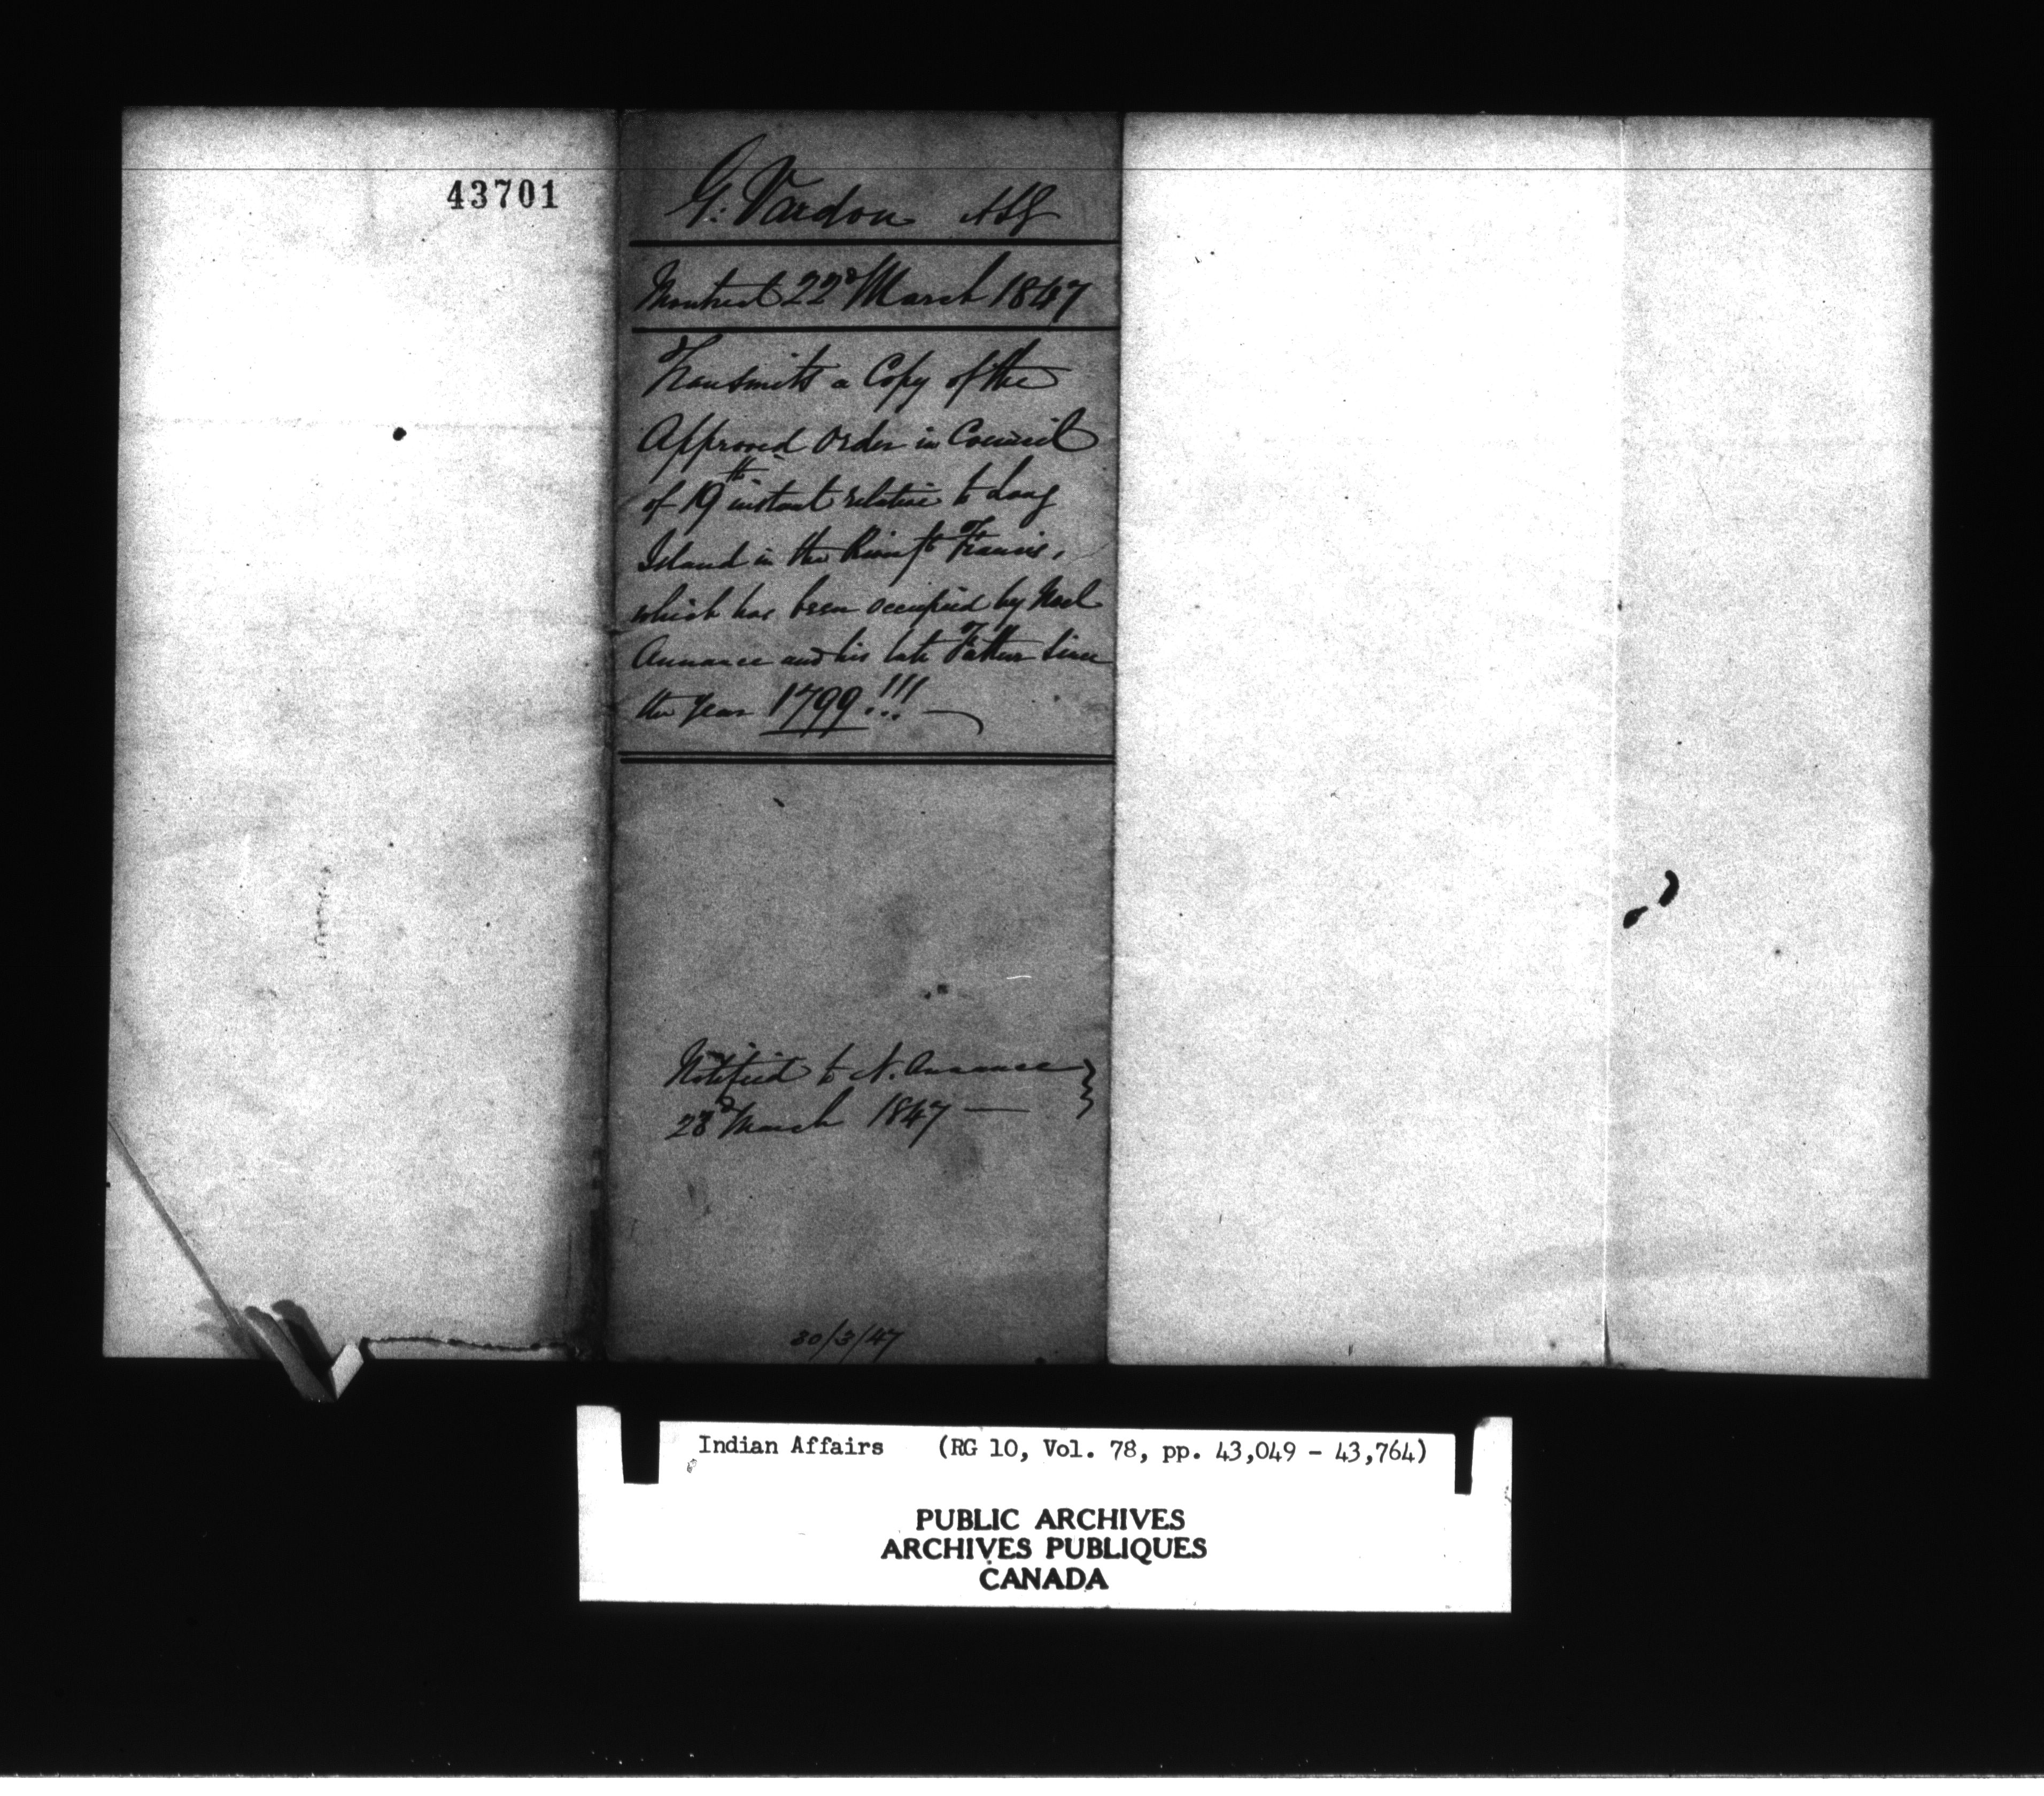 43701
G. Vardon ASG
Montreal 22d March 1847
Transmits a Copy of the
Approved Order in Council
of 19th instant relative to Long
Island in the River St Francis,
which has been occupied by Noel
Annance and his late Father since
the year 1799!!!
Notified to N. Annance
23d March 1847 —
30/3/47
Indian Affairs (RG 10, Vol. 78, pp. 43,049 - 43,764)
PUBLIC ARCHIVES
ARCHIVES PUBLIQUES
CANADA